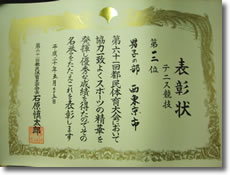 表彰状
テニス競技
第三位
男子の部 西東京市
第六十一回都民体育大会において
協力一致よくスポーツの精華を
発揮し優秀な成績を得たのでその
名誉をたたえこれを表彰します
平成二十年五月
石原慎太郎